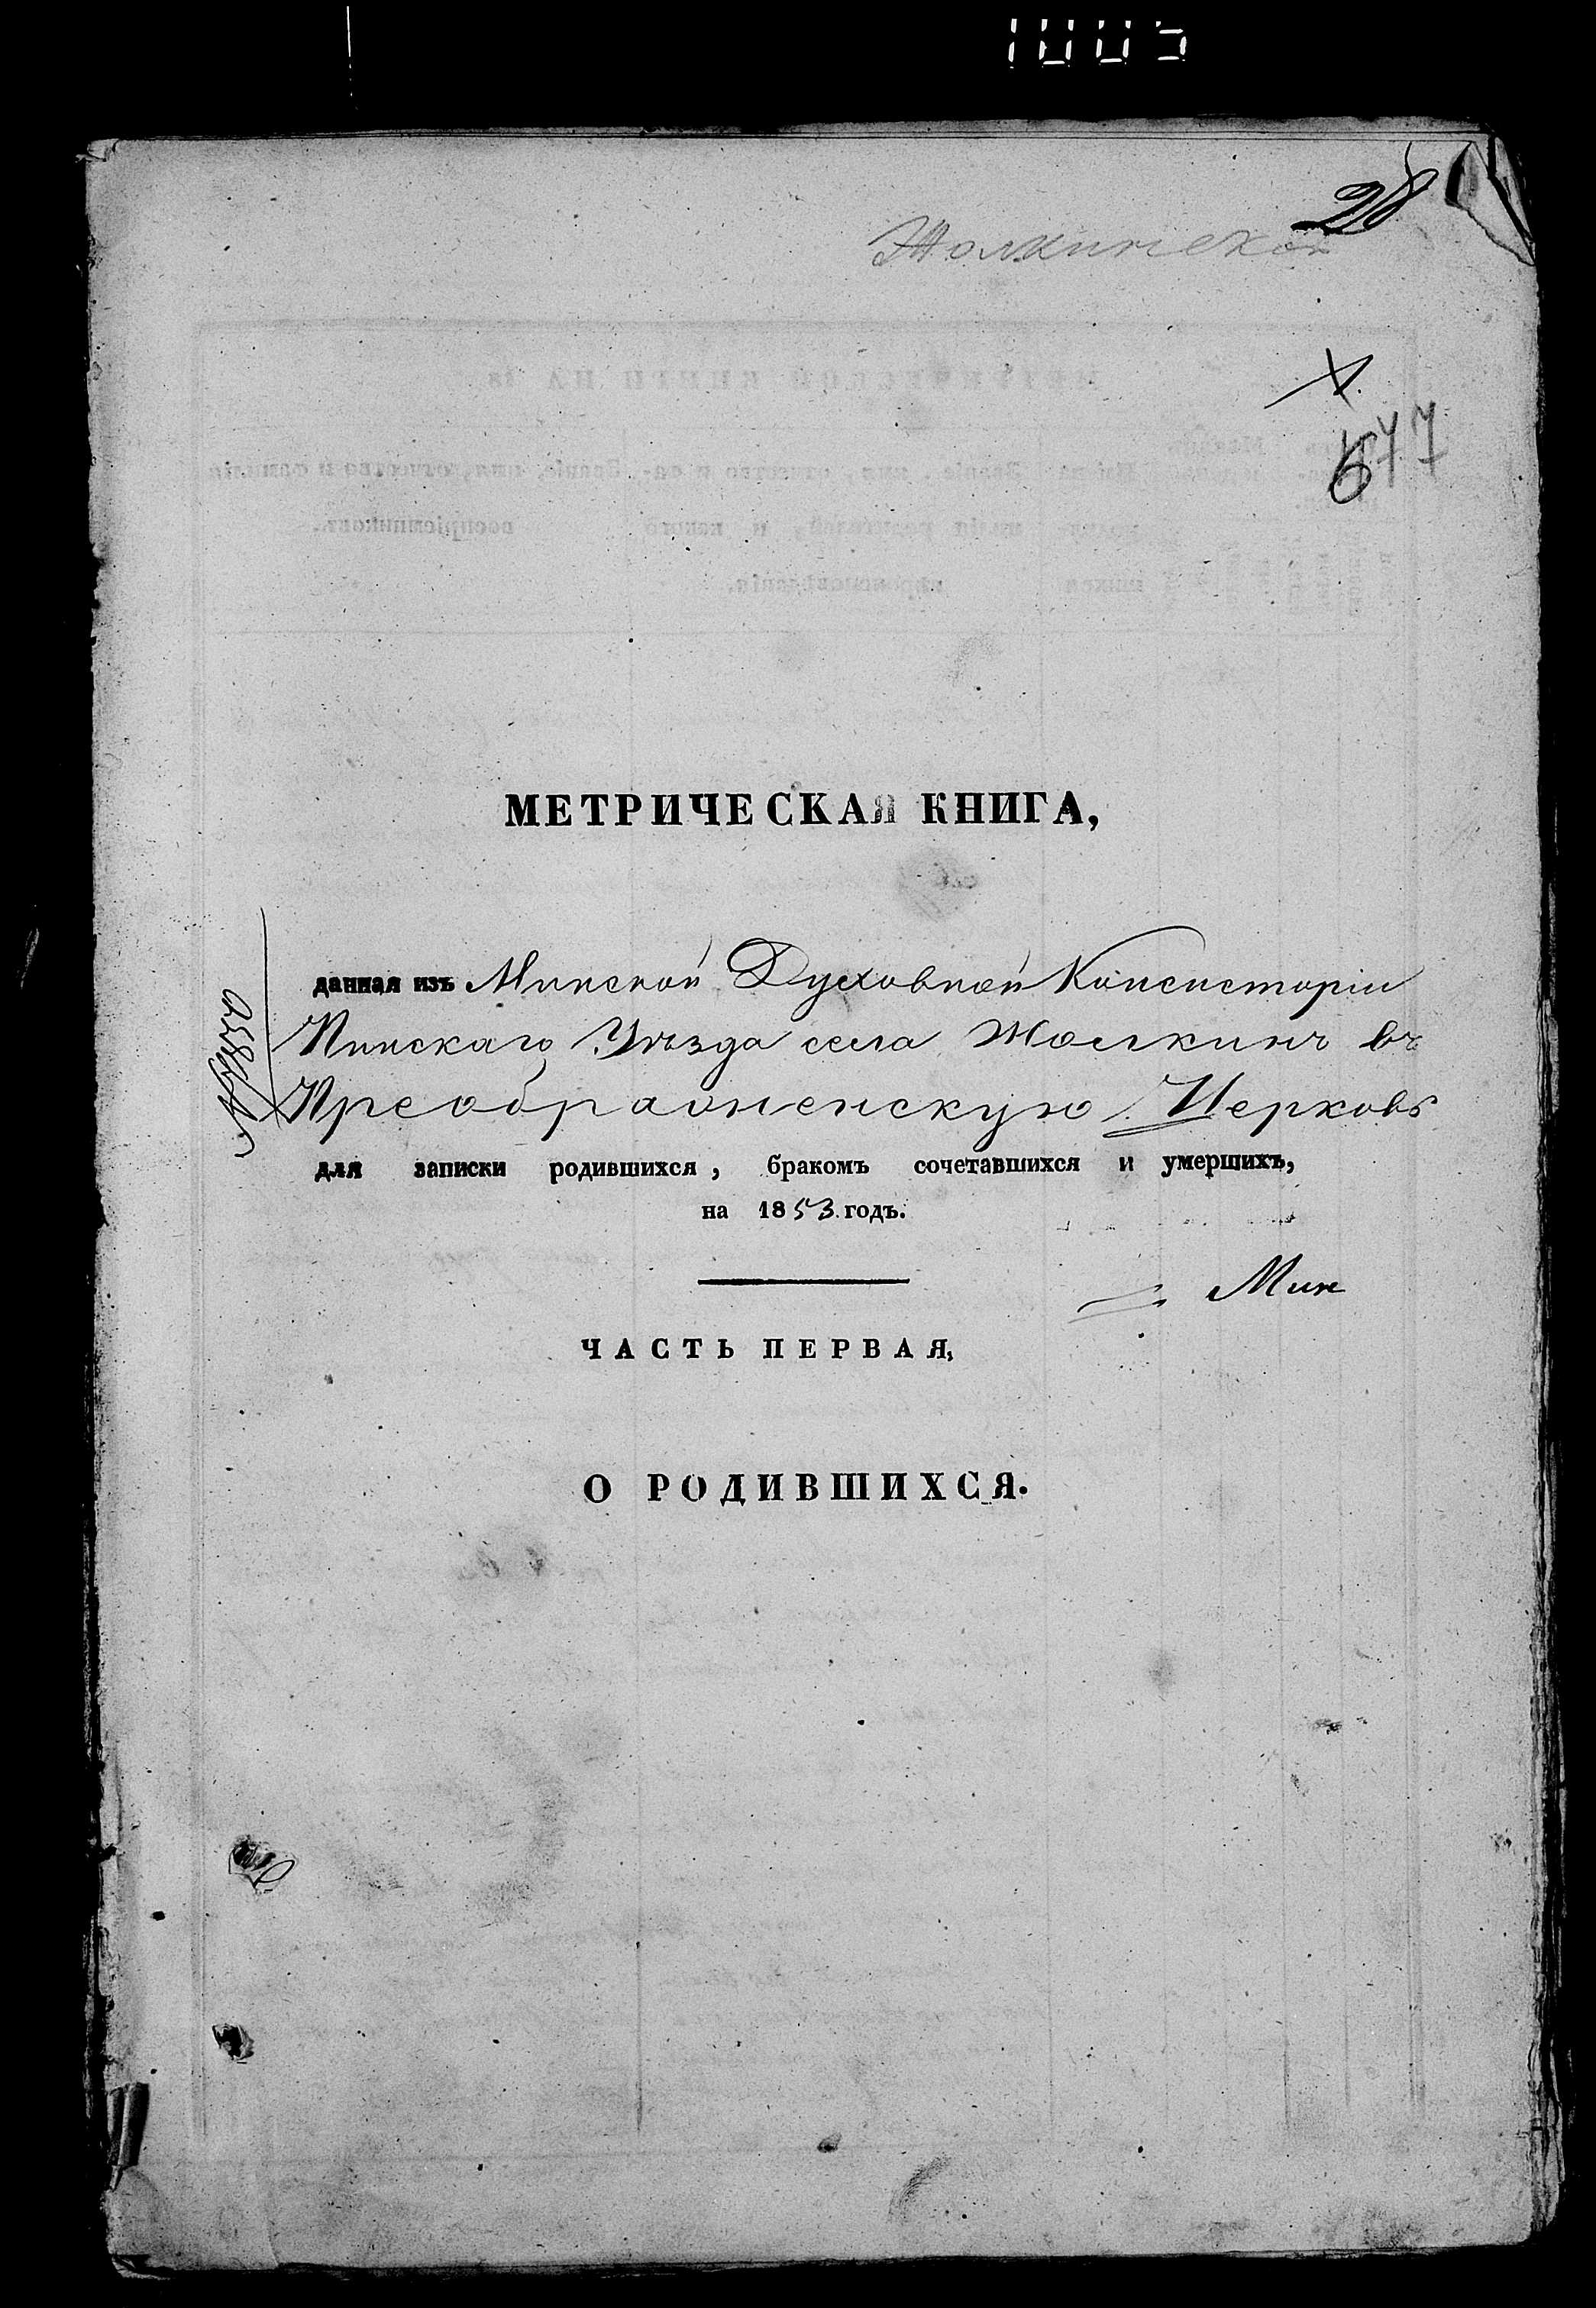 1005
28
Жолкинской
677
МЕТРИЧЕСКАЯ КНИГА,
данная изъ Минской Духовной Консисторіи
Пинскаго Уѣзда села Жолкинъ въ
Преображенскую Церковь
для записки родившихся, бракомъ сочетавшихся и умершихъ,
на 1853 годъ.
Мин
ЧАСТЬ ПЕРВАЯ,
О РОДИВШИХСЯ.